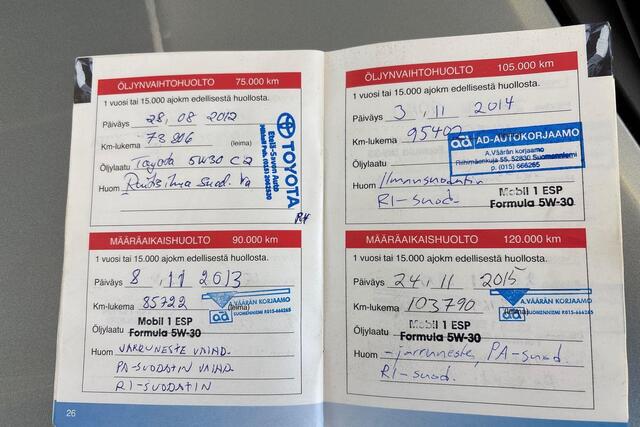 ÖLJYNVAIHTOHUOLTO 75.000 km
1 vuosi tai 15.000 ajokm edellisestä huollosta.
Päiväys 28, 08 2012
Km-lukema 73806 (leima)
Öljylaatu Toyota 5W30 C2
Huom suod.
TOYOTA
Etelä-Savon Auto
MÄÄRÄAIKAISHUOLTO 90.000 km
1 vuosi tai 15.000 ajokm edellisestä huollosta.
Päiväys 8 .11 2013
Km-lukema 85722 (leima)
A.VÄÄRÄN KORJAAMO
SUOMENNIEMI P.015-666265
ad
Mobil 1 ESP
Öljylaatu Formula 5W-30
Huom JARRUNESTE VAIHD.
PA-SUODATIN VAIHD.
RI-SUODATIN
26
ÖLJYNVAIHTOHUOLTO 105.000 km
1 vuosi tai 15.000 ajokm edellisestä huollosta.
Päiväys 3 . 11 2014
Km-lukema 95402
ad AD-AUTOKORJAAMO
A.Väärän korjaamo
Riihimäenkuja 55, 52830 Suomenniemi
p. (015) 666265
Öljylaatu
Huom Ilmansuodatin
RI-suod.
Mobil 1 ESP
Formula 5W-30
MÄÄRÄAIKAISHUOLTO 120.000 km
1 vuosi tai 15.000 ajokm edellisestä huollosta.
Päiväys 24 .11 2015
Km-lukema 103790
A.VÄÄRÄN KORJAAMO
SUOMENNIEMI P.015-666265
ad
Mobil 1 ESP
Öljylaatu Formula 5W-30
Huom -jarruneste, PA-suod.
RI-suod.